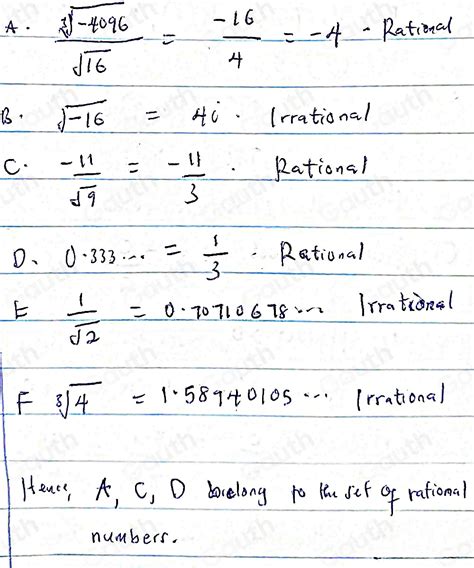 A. ∛-4096 / √16 = -16/4 = -4 - Rational
B. √-16 = 4i . Irrational
C. -11/√9 = -11/3 . Rational
D. 0.333... = 1/3 . Rational
E 1/√2 = 0.70710678... Irrational
F ∛4 = 1.58940105... Irrational
Hence, A, C, D belong to the set of rational
numbers.